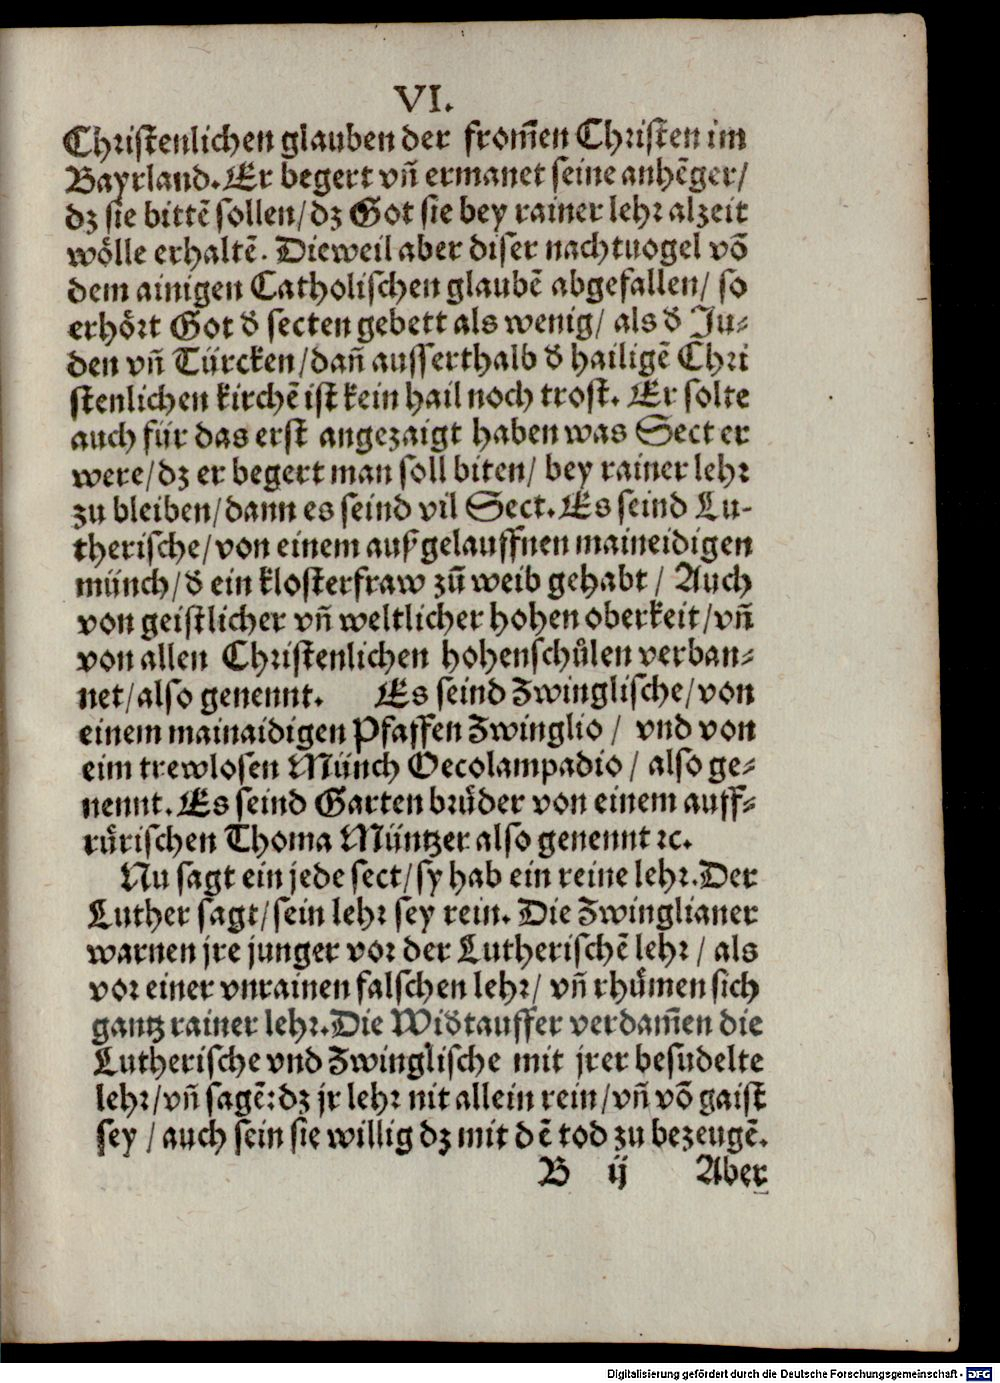 VI.
Christenlichen glauben der from̃en Christen im
Bayrland. Er begert vn̄ ermanet seine anhẽger/
dz sie bittẽ sollen/ dz Got sie bey rainer lehr alzeit
wölle erhaltẽ. Dieweil aber diser nachtuogel võ
dem ainigen Catholischen glaubẽ abgefallen/ so
erhört Got d̓ secten gebett als wenig/ als d̓ Ju⸗
den vn̄ Türcken/ dan̄ ausserthalb d̓ hailigẽ Chri
stenlichen kirchẽ ist kein hail noch trost. Er solte
auch für das erst angezaigt haben was Sect er
were/ dz er begert man soll biten/ bey rainer lehr
zu bleiben/ dann es seind vil Sect. Es seind Lu-
therische/ von einem auß gelauffnen maineidigen
münch/ d̓ ein klosterfraw zū weib gehabt/ Auch
von geistlicher vn̄ weltlicher hohen oberkeit/ vn̄
von allen Christenlichen hohenschůlen verban⸗
net/ also genennt. Es seind Zwinglische/ von
einem mainaidigen Pfaffen Zwinglio/ vnd von
eim trewlosen Münch Oecolampadio/ also ge⸗
nennt. Es seind Garten brüder von einem auff⸗
rürischen Thoma Müntzer also genennt ꝛc.
Nu sagt ein jede sect/ sy hab ein reine lehr. Der
Luther sagt/ sein lehr sey rein. Die Zwinglianer
warnen jre junger vor der Lutherischẽ lehr/ als
vor einer vnrainen falschen lehr/ vn̄ rhümen sich
gantz rainer lehr. Die Wid̓tauffer verdam̃en die
Lutherische vnd Zwinglische mit jrer besudelte
lehr/ vn̄ sagẽ: dz jr lehr nit allein rein/ vn̄ võ gaist
sey/ auch sein sie willig dz mit dẽ tod zu bezeugẽ.
B ij Aber
Digitalisierung gefördert durch die Deutsche Forschungsgemeinschaft - DFG